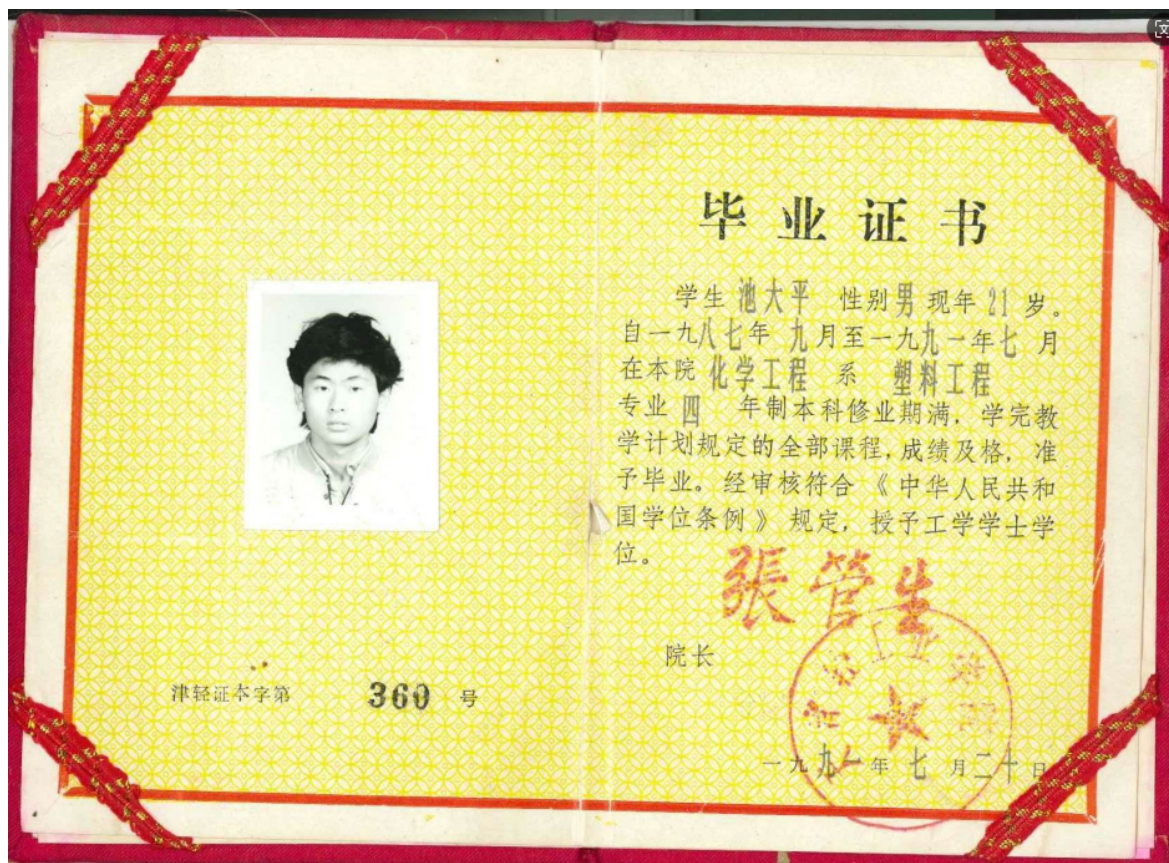 毕业证书
学生 池大平 性别 男 现年 21 岁。
自一九八七年 九月至一九九一年七月
在本院 化学工程 系 塑料工程
专业 四 年制本科修业期满,学完教
学计划规定的全部课程,成绩及格,准
予毕业。经审核符合《中华人民共和
国学位条例》规定,授予工学学士学
位。
張管生
院长
津轻证本字第 360 号
一九九一年 七 月二十日